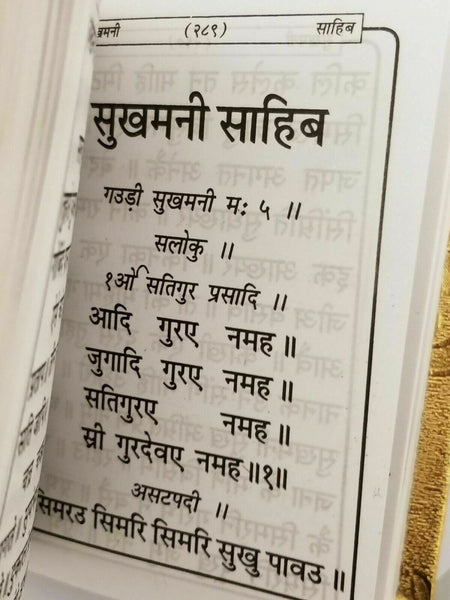 खमनी (२८९) साहिब
सुखमनी साहिब
गउड़ी सुखमनी म: ५ ॥
सलोकु ॥
१ओ सतिगुर प्रसादि ॥
आदि गुरए नमह ॥
जुगादि गुरए नमह ॥
सतिगुरए नमह ॥
स्री गुरदेवए नमह॥१॥
असटपदी ॥
सिमरउ सिमरि सिमरि सुखु पावउ ॥